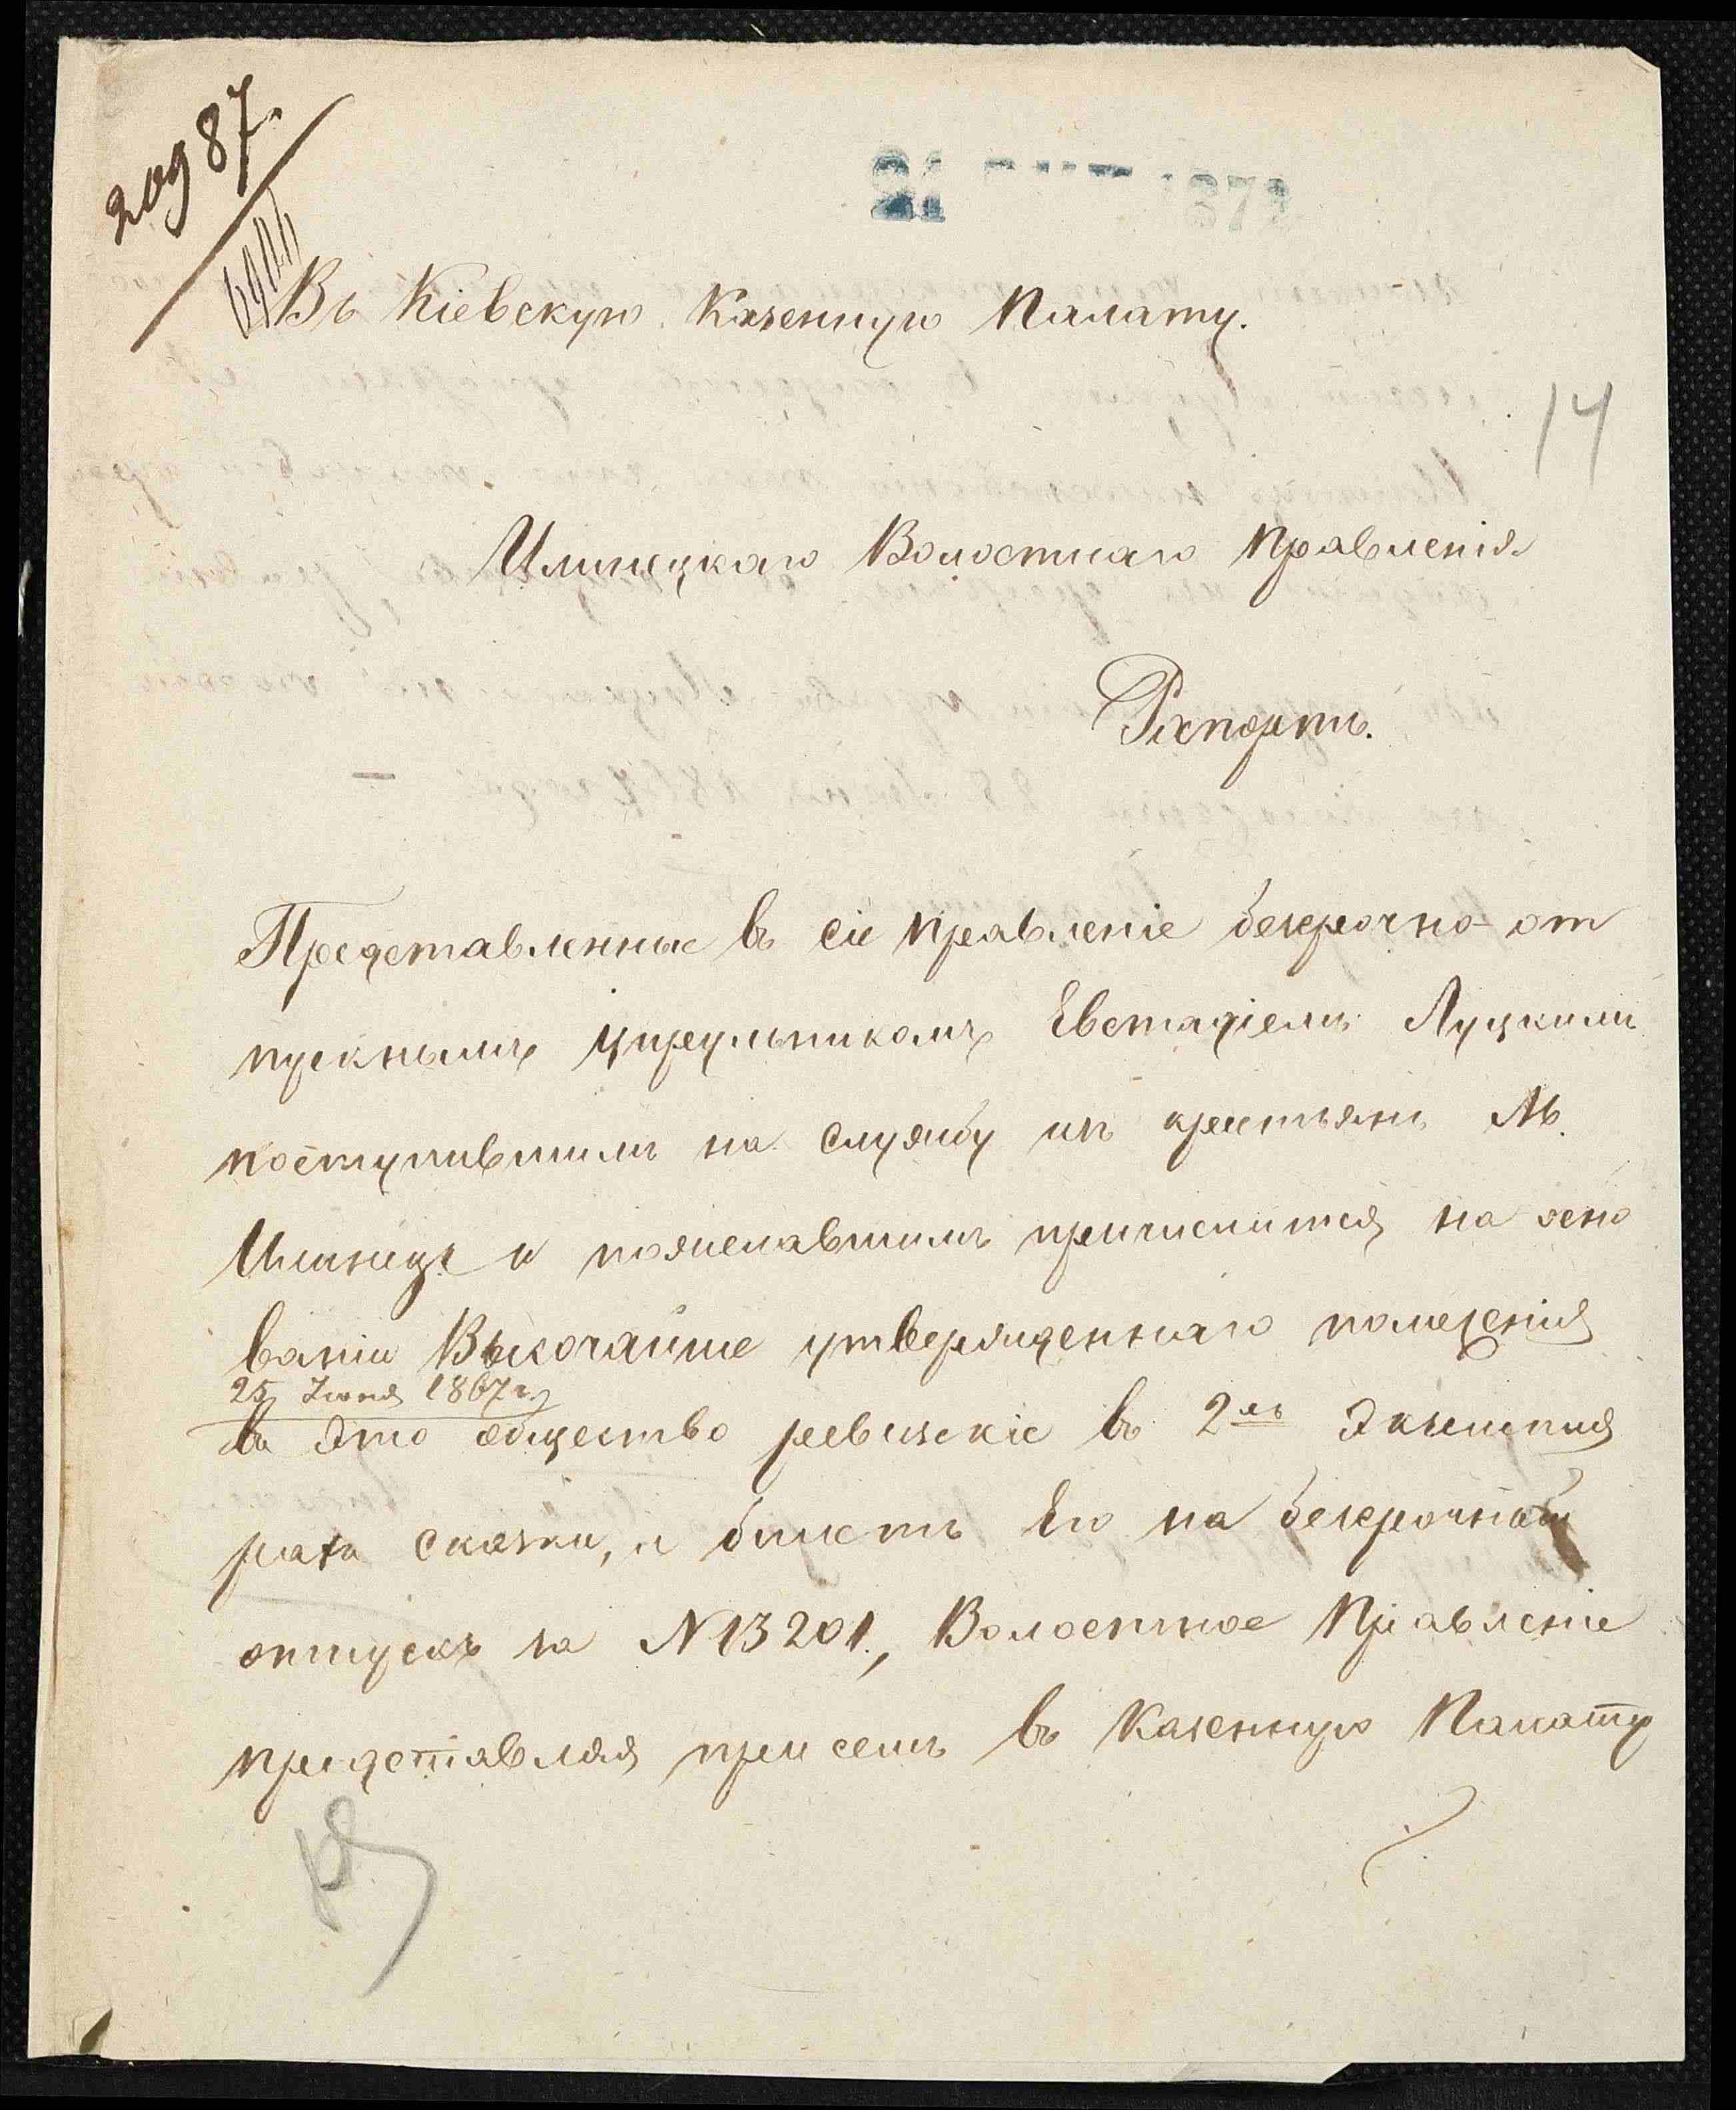 20987.
21 ОКТ 1871
Въ Кіевскую Казенную Палату.
14
Илинецкаго Волостнаго Правленія
Рапортъ.
Представленные въ сіе правленіе безсрочно-от
пускнымъ цирульникомъ Евстафіемъ Луцкимъ
поступившимъ на службу изъ крестьянъ М.
Илинецъ и пожелавшимъ причислится на осно
ваніи Высочайше утвержденнаго положенія
25 Іюня 1867 г.
въ это общество ревизскіе въ 2хъ Экземпля
рахъ сказки, и билетъ Его на безсрочный
отпускъ за N 13201., Волостное Правленіе
представляя при семъ въ Казенную Палату